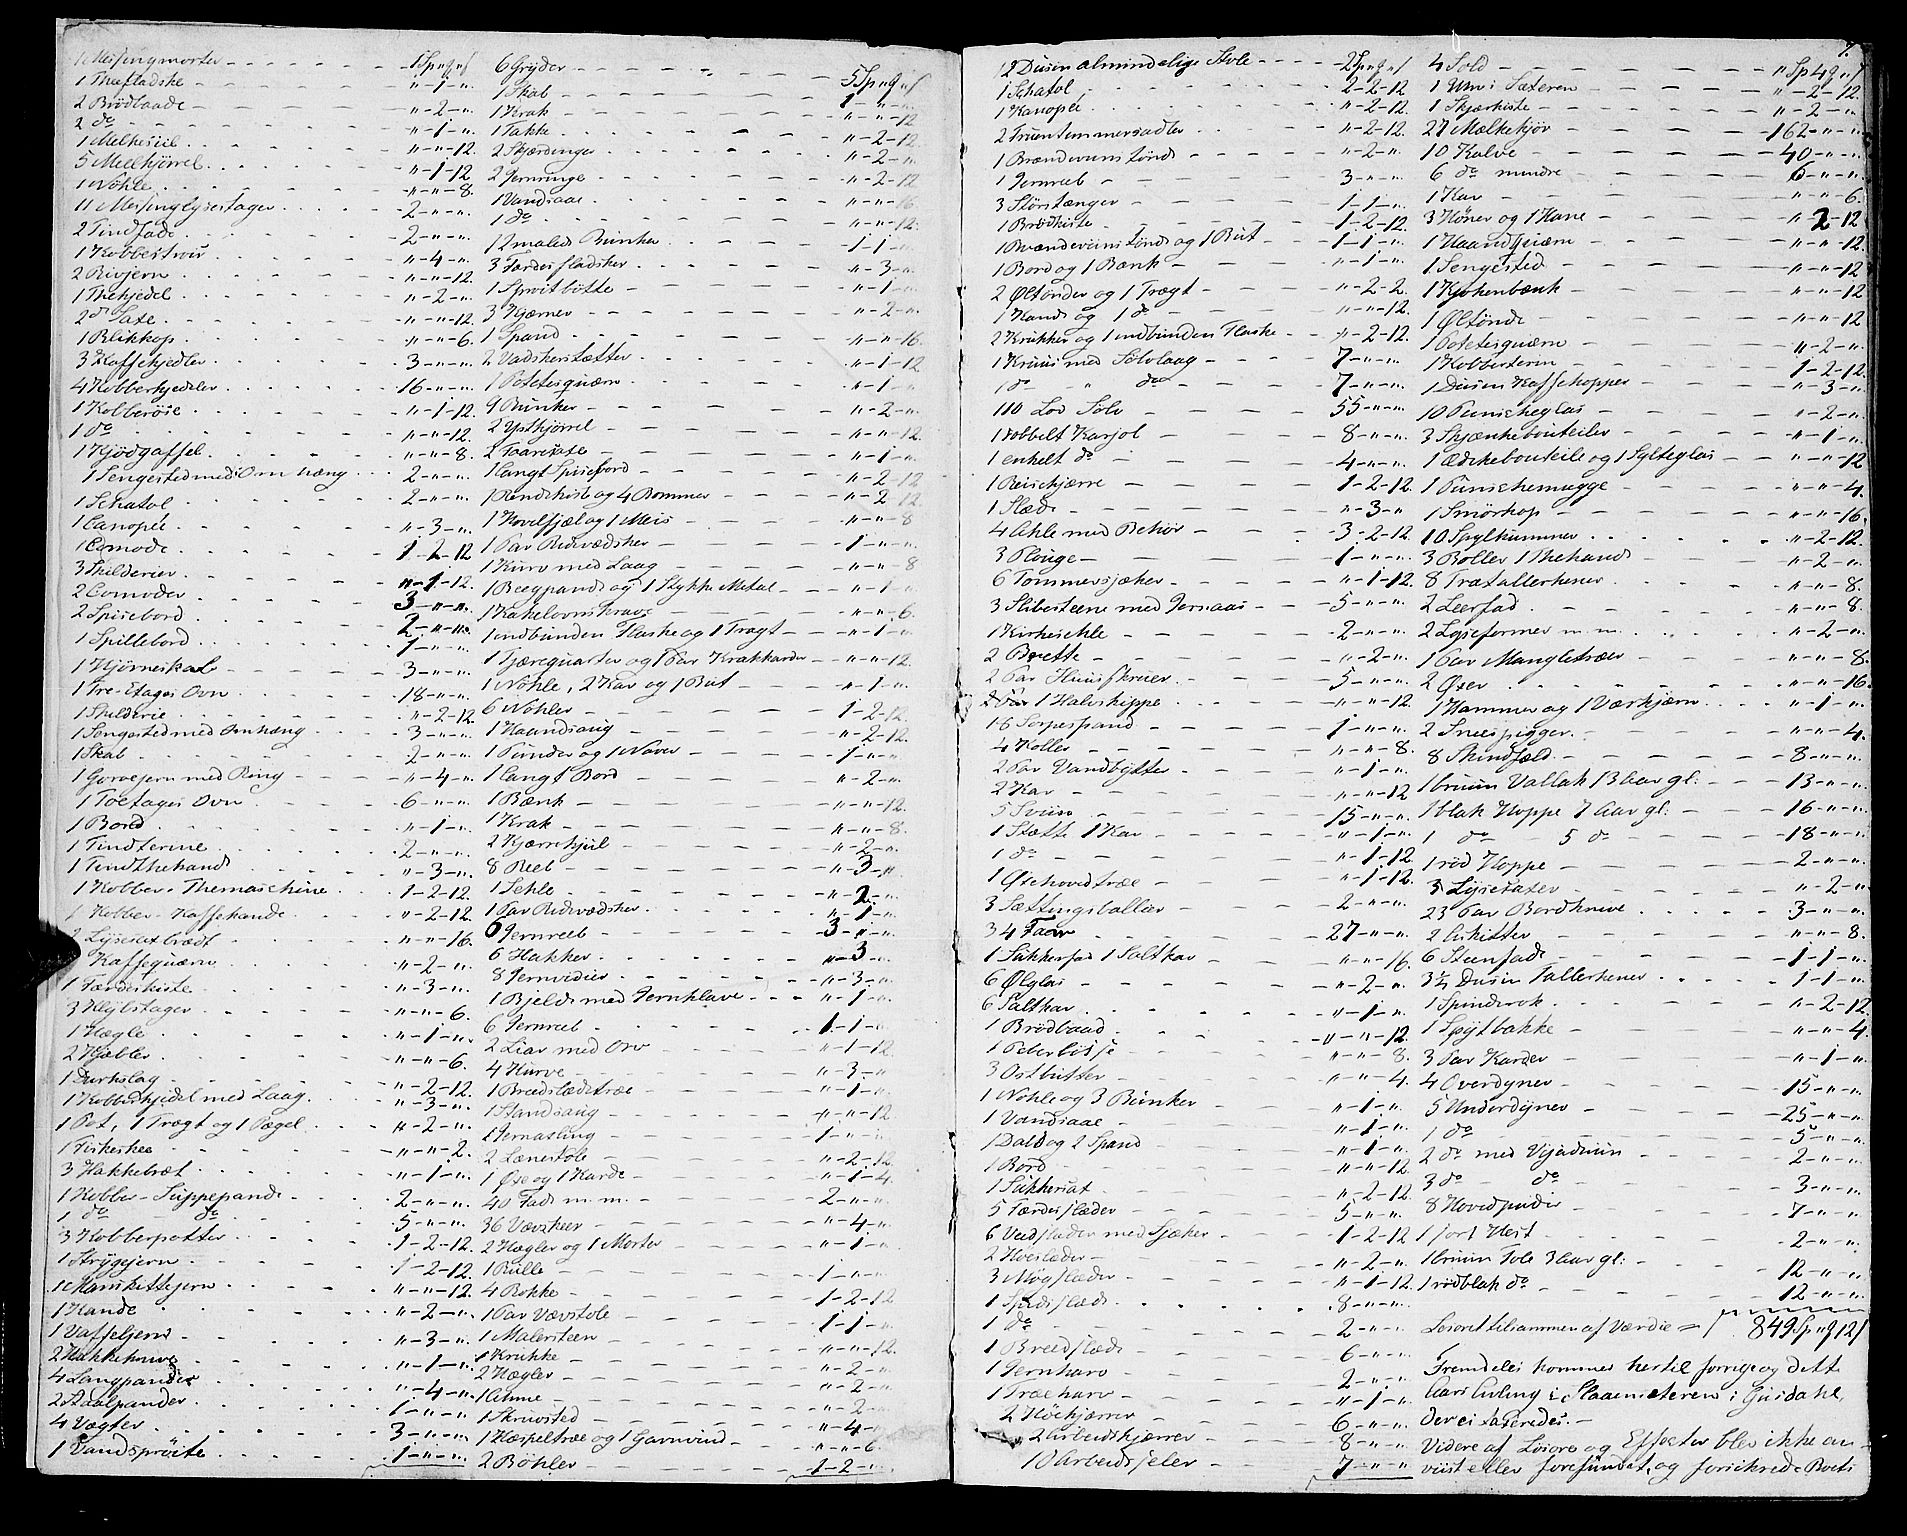 1 Messingmorter - - - 1 Sp " q " s
1 Theefladske - - - " - 1 - "
2 Brødlaade - - - " - 2 - "
2 do - - - " - 1 - "
1 Melkesiil - - - " - " - 12.
5 Melkhjørrel - - - " - 1 - 12
1 Nohle - - - " - " - 8.
11 Messinglysestager - - - 2 - " - "
2 Tindfade - - - 2 - " - "
1 Kobbertrur - - - " - 4 - "
2 Rivjern - - - " - " - 12.
1 Thekjedel - - - " - 2 - "
2 do Saxe - - - " - " - 12.
1 Blikkop - - - " - " - 6.
3 Kaffekjedler - - - 3 - " - "
4 Kobberkjedeler - - - 16 - " - "
1 Kobberøse - - - " - 1 - 12.
1 do - - - " - " - 12.
1 Kjødgaffel - - - " - " - 8
1 Sengested med Omhæng - - - 2 - " - "
1 Schatol - - - 2 - " - "
1 Canopee - - - " - 3 - "
1 Comode - - - 1 - 2 - 12
3 Skilderier - - - " - 1 - 12.
2 Comoder - - - 3 - " - "
2 Spisebord - - - 2 - " - "
1 Spillebord - - - 1 - " - "
1 Hjørneskab - - - 3 - " - "
1 Tre-Etages Ovn - - - 18 - " - "
1 Skilderie - - - " - 2 - 12
1 Sengested med Omhæng - - - 3 - " - "
1 Skab - - - 2 - " - "
1 Gorøejern med Ring - - - " - 4 - "
1 Toetages Ovn - - - 6 - " - "
1 Bord - - - " - 1 - "
1 Tindterine - - - 2 - " - "
1 Tindthekande - - - " - 3 - "
1 Kobber-Themaschine - - - 1 - 2 - 12.
1 Kobber-Kaffekande - - - " - 2 - 12.
2 Lysesaxbrædt - - - " - " - 16.
1 Kaffequærn - - - " - 2 - "
1 Færdeskiste - - - " - 3 - "
3 Klybstager - - - " - " - 6.
1 Hægle - - - " - 1 - "
2 Kjebler - - - " - " - 6.
1 Durkslag - - - " - 2 - 12.
1 Kobberkjedel med Laag - - - " - 3 - "
1 Pot, 1 Tragt og 1 Pægel - - - " - 2 - "
1 Fiskeskee - - - " - " - 2.
3 Hakkebræt - - - " - 1 - "
1 Kobber-Suppepande - - - 2 - " - "
1 do do - - - 5 - " - "
3 Kobberpotter - - - 1 - 2 - 12.
1 Strygejern - - - 1 - 2 - 12.
1 Manskittejern - - - " - " - 12
1 Kande - - - " - 2 - "
1 Vaffeljern - - - " - 3 - "
2 Hakkeknive - - - " - 1 - "
4 Langpander - - - " - 4 - "
2 Staalpander - - - 1 - " - "
4 Vægter - - - 3 - " - "
1 Vandsprøite - - - 1 - " - "
6 Gryder - - - 5 Sp " q " s
1 Skab - - - 1 - " - "
1 Krak - - - " - " - 12
1 Takke - - - " - 2 - 12.
2 Skjærdinger - - - " - 2 - "
2 Jernringe - - - " - 2 - 12
1 Vandsaae - - - " - " - 16
1 do - - - " - " - 12.
12 malede Bunker - - - 1 - 1 - "
3 Færdesfladsker - - - " - 3 - "
1 Sprøitbøtte - - - " - 1 - "
3 Kjærner - - - " - 2 - "
1 Spand - - - " - " - 16.
2 Vadskerstætter - - - " - 1 - 12
1 Potetesquærn - - - " - 1 - "
9 Bunker - - - " - 2 - "
2 Ystkjørrel - - - " - " - 12.
2 Faaresaxe - - - " - 1 - "
1 langt Spisebord - - - " - 2 - 12
1 Rendeskist og 4 Bommer - - - " - 2 - 12
1 Kovelfjæl og 1 Meis - - - " - " - 8
1 Par Ridevædsker - - - 1 - " - "
1 Kurv med Laag - - - " - " - 8
1 Beegpande og 1 Stykke Metal - - - " - 1 - "
1 Kakelovnskrave - - - " - " - 6.
1 indbunden Flaske og 1 Tragt - - - " - 1 - "
1 Tjærequarter og 1 Par Krakkarder - - - " - " - 12.
1 Nohle, 2 Kar og 1 But - - - " - 1 - "
6 Nohler - - - 1 - 2 - 12.
1 Haandsaug - - - " - 2 - 12.
1 Punder og 1 Naver - - - 1 - " - "
1 langt Bord - - - " - 2 - "
1 Bænk - - - " - " - 12.
1 Krak - - - " - " - 8.
2 Kjærrehjul - - - " - 2 - "
8 Reeb - - - " - 3 - "
1 Sehle - - - " - 2 - "
1 Par Ridevædsker - - - " - 1 - "
6 Jernreeb - - - 3 - " - "
6 Hakker - - - " - 3 - "
8 Jernvidier - - - " - 3 - "
1 Bjelde med Jernklave - - - " - 1 - "
6 Jernreeb - - - 1 - 1 - "
2 Liar med Orv - - - " - 1 - 12
4 Kurve - - - " - 3 - "
1 Bredslædetræe - - - " - 1 - "
1 Standsaug - - - " - " - 12
1 Jernastling - - - 1 - " - "
2 Lænestole - - - " - 2 - 12
1 Øxe og 1 Karde - - - " - 1 - 4
40 Fade m.m. - - - 2 - " - "
36 Vævskeer - - - " - 4 - "
2 Hægler og 1 Morter - - - " - 1 - "
1 Rulle - - - 1 - " - "
4 Rokke - - - 1 - 2 - 12
1 Par Vævstole - - - 1 - 1 - "
1 Malersteen - - - " - " - 12.
1 Krukke - - - " - 2 - "
2 Hægler - - - " - 2 - "
1 Anme - - - " - 2 - "
1 Skruested - - - " - 4 - "
1 Hæspeltræe og 1 Garnvind - - - " - " - 6
2 Bøhler - - - 1 - 2 - "
1/2 Dusin almindelige Stole - - - 2 Sp " q " s
1 Schatol - - - 2 - 2 - 12
1 Kanopee - - - " - 2 - 12
2 Fruentimmersadler - - - " - 2 - 12.
1 Brændeviinstønde - - - " - 2 - "
1 Jernreeb - - - 3 - " - "
3 Størstænger - - - 1 - 1 - "
1 Brødkiste - - - 1 - 2 - 12.
1 Brændeviinstønde og 1 But - - - 1 - 1 - "
1 Bord og 1 Bænk - - - " - 1 - "
2 Øltønder og 1 Trægt - - - " - 2 - 2.
1 Kande og 1 do - - - " - " - 12.
2 Krukker og 1 indbunden Flaske - - - " - 2 - 12.
1 Kruus med Sølvlaag - - - 7 - " - "
1 do " do - - - 7 - " - "
110 Lod Sølv - - - 55 - " - "
1 dobbelt Karjol - - - 8 - " - "
1 enkelt do - - - 4 - " - "
1 Reisekjærre - - - 1 - 2 - 12.
1 Slæde - - - " - 3 - "
4 Ahle med Behør - - - 3 - 2 - 12
3 Plouge - - - 1 - " - "
6 Tømmersjæker - - - " - 1 - 12.
3 Slibesteene med Jernaas - - - 5 - " - "
1 Kirkesehle - - - 2 - " - "
2 Borette - - - " - 2 - "
2 Par Huusskruer - - - 5 - " - "
1 Halvskippe - - - " - " - 12
18 Sorpespand - - - 1 - " - "
4 Koller - - - " - " - 8.
2 Par Vandbytter - - - " - 1 - "
2 Kar - - - " - " - 12
5 Sviin - - - 15 - " - "
1 Stætte 1 Kar - - - " - 1 - "
1 do - - - " - 1 - 12
1 Øxehovedtræe - - - " - 1 - 12.
3 Sættingsballier - - - 2 - " - "
34 Faar - - - 27 - " - "
1 Sukkerfad 1 Saltkar - - - " - " - 16.
6 Ølglas - - - " - 2 - "
6 Saltkar - - - " - 1 - "
1 Brødbaad - - - " - " - 12.
1 Peberbøsse - - - " - " - 8.
3 Ostbutter - - - " - " - 4.
1 Nohle og 3 Bunker - - - " - 1 - "
1 Vandsaae - - - " - 1 - "
1 Dald og 2 Spand - - - " - 1 - "
1 Bord - - - " - " - 12
1 Sukkersax - - - " - 2 - 12.
5 Færdeslæder - - - 5 - " - "
6 Vedslæder med Sjæker - - - 1 - 2 - 12
2 Høeslæder - - - " - 2 - "
3 Møgslæder - - - " - 1 - 12
1 Spidsslæde - - - 8 - " - "
1 do - - - 2 - " - "
1 Breedslæde - - - 6 - " - "
1 Jernharv - - - 2 - " - "
1 Træeharv - - - " - 1 - "
2 Høekjærrer - - - 6 - " - "
2 Arbeidskjærrer - - - 8 - " - "
10 Arbeidsseler - - - 7 - " - "
4 Sold - - - " Sp 4 q " s
1 Uhr i Sæteren - - - " - 2 - 12.
1 Skjærkiste - - - " - 2 - "
27 Mælkekjør - - - 162 - " - "
10 Kalve - - - 40 - " - "
6 do mindre - - - 6 - " - "
1 Kar - - - " - " - 6.
3 Høner og 1 Hane - - - " - 2 - 12
1 Haandquærn - - - " - " - 12.
1 Sengested - - - " - " - 12
1 Kjøkenbænk - - - " - " - 12
1 Øltønde - - - " - " - 12
1 Potetesquærn - - - " - 2 - "
1 Kobberterin - - - 1 - 2 - 12.
1 Dusin Kaffekopper - - - " - 3 - "
10 Punscheglas - - - " - 2 - "
3 Skjænkebouteiler - - - " - 1 - "
1 Ædikebouteile og 1 Sylteglas - - - " - " - 12
1 Punschemugge - - - " - " - 4.
1 Smørkop - - - " - " - 16.
10 Spylkummer - - - " - 2 - 12.
3 Boller 1 Thekande - - - " - 2 - "
8 Trætallerkener - - - " - " - 8.
2 Leerfad - - - " - " - 8.
2 Lyseformer m.m. - - - " - 2 - "
1 Par Mangletræer - - - " - " - 8.
2 Øxer - - - " - " - 16.
1 Hammer og 1 Værkjærn - - - " - 1 - "
2 Sneespigger - - - " - " - 4.
8 Skindfæld - - - 8 - " - "
1 bruun Vallak 13 Aar gl: - - - 13 - " - "
1 blak Hoppe 7 Aar gl: - - - 16 - " - "
1 do 5 do - - - 18 - " - "
1 rød Hoppe - - - 2 - " - "
3 Lysesaxer - - - " - 2 - "
23 Par Bordknive - - - 3 - " - "
2 Askitter - - - " - " - 8.
6 Steenfade - - - 1 - 1 - "
3 1/2 Dusin Tallerkener - - - 1 - 1 - "
1 Spinderok - - - " - 2 - 12.
1 Spytbakke - - - " - " - 4.
3 Par Karder - - - " - 1 - "
4 Overdyner - - - 15 - " - "
5 Underdyner - - - 25 - " - "
1 do - - - 5 - " - "
2 do med Vejaduun - - - 2 - " - "
3 do do - - - 3 - " - "
8 Hovedpuder - - - 7 - " - "
1 sort Hest - - - 2 - " - "
1 bruun Fole 3 Aar gl: - - - 12 - " - "
1 rødblak do - - - 12 - " - "
Løsøret tilsammen af Værdie = 849 Sp " q 12 s
Fremdeles kommer hertil forrige og dette
Aars Avling i Slaaensæteren i Gusdahl,
der ei taxeredes. -
Videre af Løsøre og Effecter blev ikke an-
viist eller forefundet, og forsikrede Boets